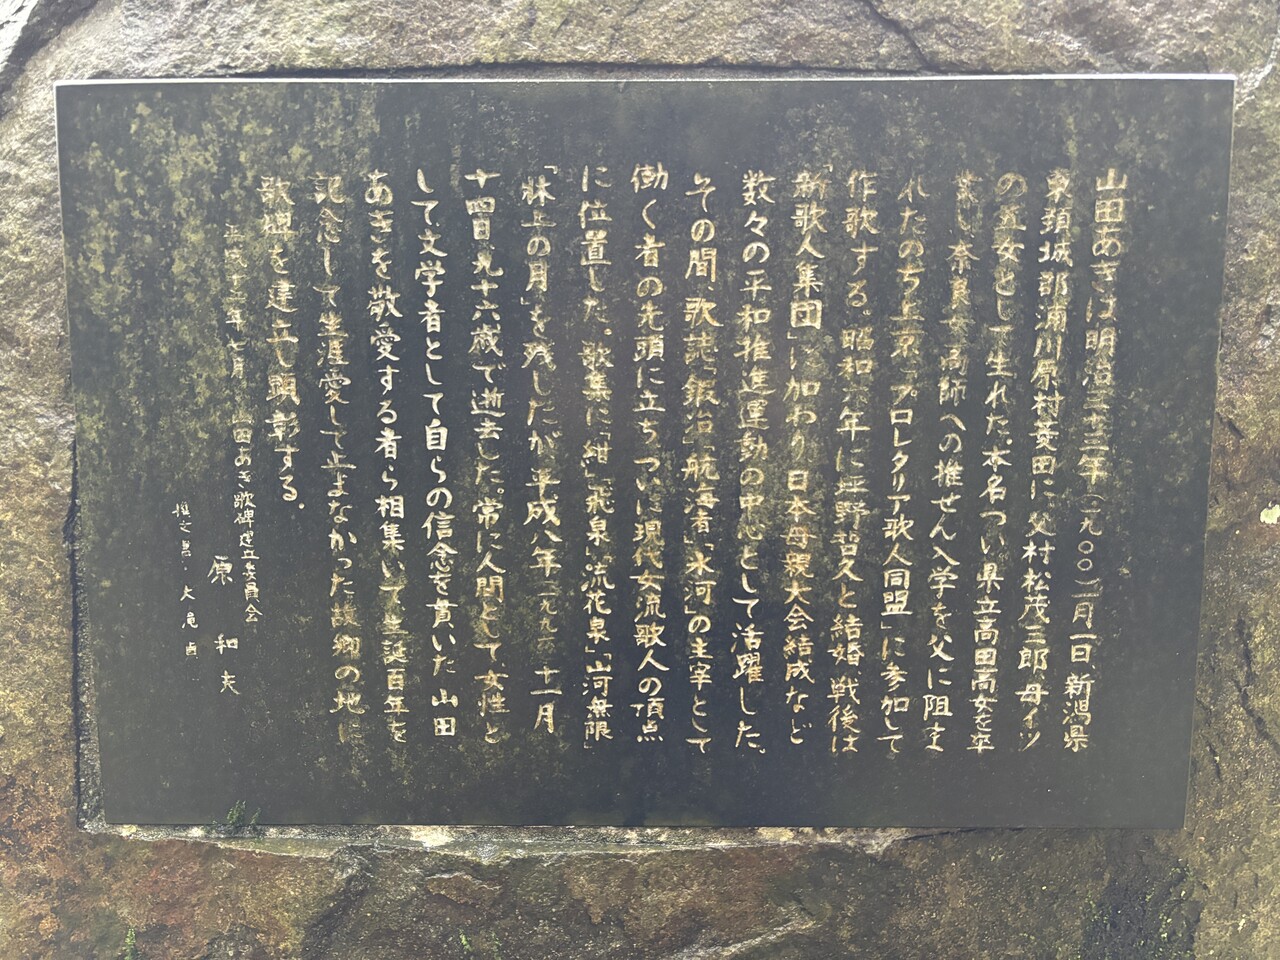 山田あきは明治三十三年(一九〇〇)一月一日、新潟県
東頚城郡浦川原村菱田に父村松茂三郎、母イツ
の五女として生れた。本名つい県立高田高女を卒
業し奈良女高師への推せん入学を父に阻ま
れたのち上京「プロレタリア歌人同盟」に参加して
作歌する。昭和六年に坪野哲久と結婚、戦後は
「新歌人集団」に加わり日本母親大会結成など
数々の平和推進運動の中心として活躍した。
その間、歌誌「鍛冶」「航海者」「氷河」の主宰として
働く者の先頭に立ちついに現代女流歌人の頂点
に位置した。歌集に「紺」「飛泉」「流花泉」「山河無限」
「牀上の月」を残したが平成八年(一九九六)十一月
十四日、九十六歳で逝去した。常に人間として、女性と
して、文学者として自らの信念を貫いた山田
あきを敬愛する者ら相集いて生誕百年を
記念して生涯愛して止まなかった故郷の地に
歌碑を建立し顕彰する。
平成十二年七月 山田あき歌碑建立委員会
原 和夫
撰文書・大滝貞